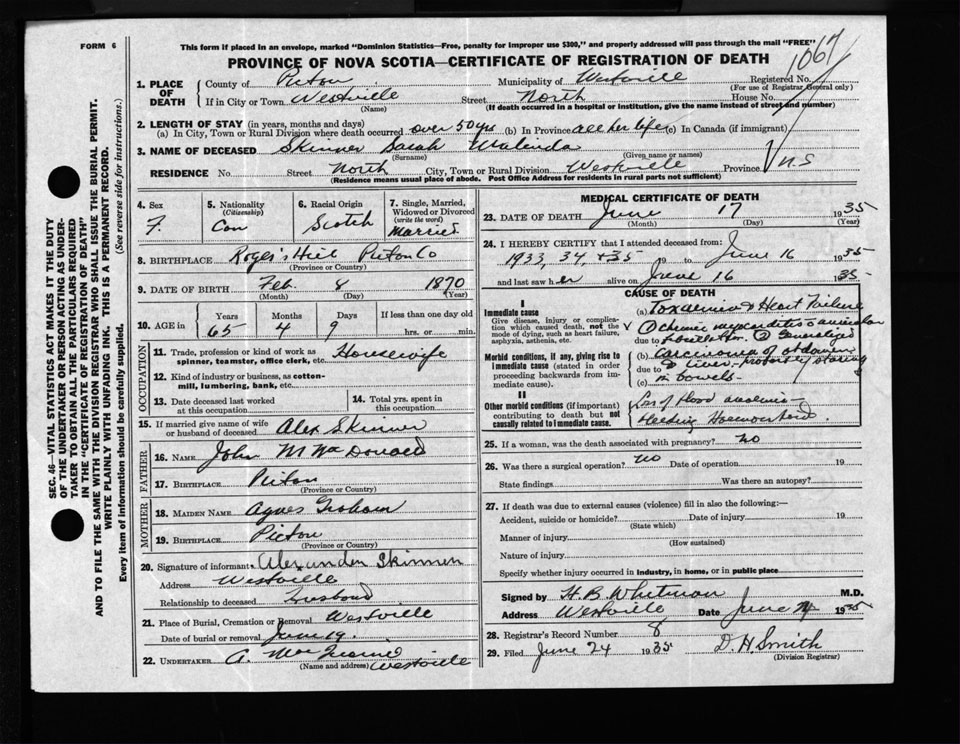 FORM 6
This form if placed in an envelope, marked "Dominion Statistics—Free, penalty for improper use $300," and properly addressed will pass through the mail "FREE"
PROVINCE OF NOVA SCOTIA—CERTIFICATE OF REGISTRATION OF DEATH
1067
1. PLACE OF DEATH
County of Pictou Municipality of Westville Registered No.
(For use of Registrar General only)
If in City or Town Westville Street North House No.
(Name) (If death occurred in a hospital or institution, give the name instead of street and number)
2. LENGTH OF STAY (in years, months and days)
(a) In City, Town or Rural Division where death occurred over 50 yrs (b) In Province all her life (c) In Canada (if immigrant)
3. NAME OF DECEASED Skinner Sarah Malinda
(Surname) (Given name or names)
RESIDENCE No. Street North City, Town or Rural Division Westville Province N S
(Residence means usual place of abode. Post Office Address for residents in rural parts not sufficient)
4. Sex F.
5. Nationality (Citizenship) Can
6. Racial Origin Scotch
7. Single, Married, Widowed or Divorced (write the word) Married
8. BIRTHPLACE Roger's Hill Pictou Co
(Province or Country)
9. DATE OF BIRTH Feb. 8 1870
(Month) (Day) (Year)
10. AGE in Years Months Days If less than one day old
65 4 9 hrs. or min.
OCCUPATION
11. Trade, profession or kind of work as spinner, teamster, office clerk, etc. Housewife
12. Kind of industry or business, as cotton-mill, lumbering, bank, etc.
13. Date deceased last worked at this occupation
14. Total yrs. spent in this occupation
15. If married give name of wife or husband of deceased Alex Skinner
FATHER
16. NAME John M MacDonald
17. BIRTHPLACE Pictou
(Province or Country)
MOTHER
18. MAIDEN NAME Agnes Graham
19. BIRTHPLACE Pictou
(Province or Country)
20. Signature of informant Alexander Skinner
Address Westville
Relationship to deceased Husband
21. Place of Burial, Cremation or Removal Westville
Date of burial or removal June 19.
22. UNDERTAKER A. Westville
(Name and address)
MEDICAL CERTIFICATE OF DEATH
23. DATE OF DEATH June 17 1935
(Month) (Day) (Year)
24. I HEREBY CERTIFY that I attended deceased from:
1933, 34, + 35 19 to June 16 1935
and last saw her alive on June 16 1935
CAUSE OF DEATH
I
Immediate cause
Give disease, injury or complication which caused death, not the mode of dying, such as heart failure, asphyxia, asthenia, etc.
(a) Toxaemia & Heart Failure
due to
Morbid conditions, if any, giving rise to immediate cause (stated in order proceeding backwards from immediate cause).
(b) Carcinoma of abdomen
due to & liver - probably starting
(c) in bowels -
II
Other morbid conditions (if important) contributing to death but not causally related to immediate cause.
Loss of blood
25. If a woman, was the death associated with pregnancy? no
26. Was there a surgical operation? no Date of operation 19
State findings Was there an autopsy?
27. If death was due to external causes (violence) fill in also the following:—
Accident, suicide or homicide? Date of injury 19
(State which)
Manner of injury
(How sustained)
Nature of injury
Specify whether injury occurred in industry, in home, or in public place
Signed by H. B. Whitman M.D.
Address Westville Date June 1935
28. Registrar's Record Number 8
29. Filed June 24 1935 D. H. Smith
(Division Registrar)
SEC. 46—VITAL STATISTICS ACT MAKES IT THE DUTY
OF THE UNDERTAKER OR PERSON ACTING AS UNDERTAKER TO OBTAIN ALL THE PARTICULARS REQUIRED
IN THE "CERTIFICATE OF REGISTRATION OF DEATH"
AND TO FILE THE SAME WITH THE DIVISION REGISTRAR WHO SHALL ISSUE THE BURIAL PERMIT.
WRITE PLAINLY WITH UNFADING INK. THIS IS A PERMANENT RECORD.
Every item of information should be carefully supplied. (See reverse side for instructions.)